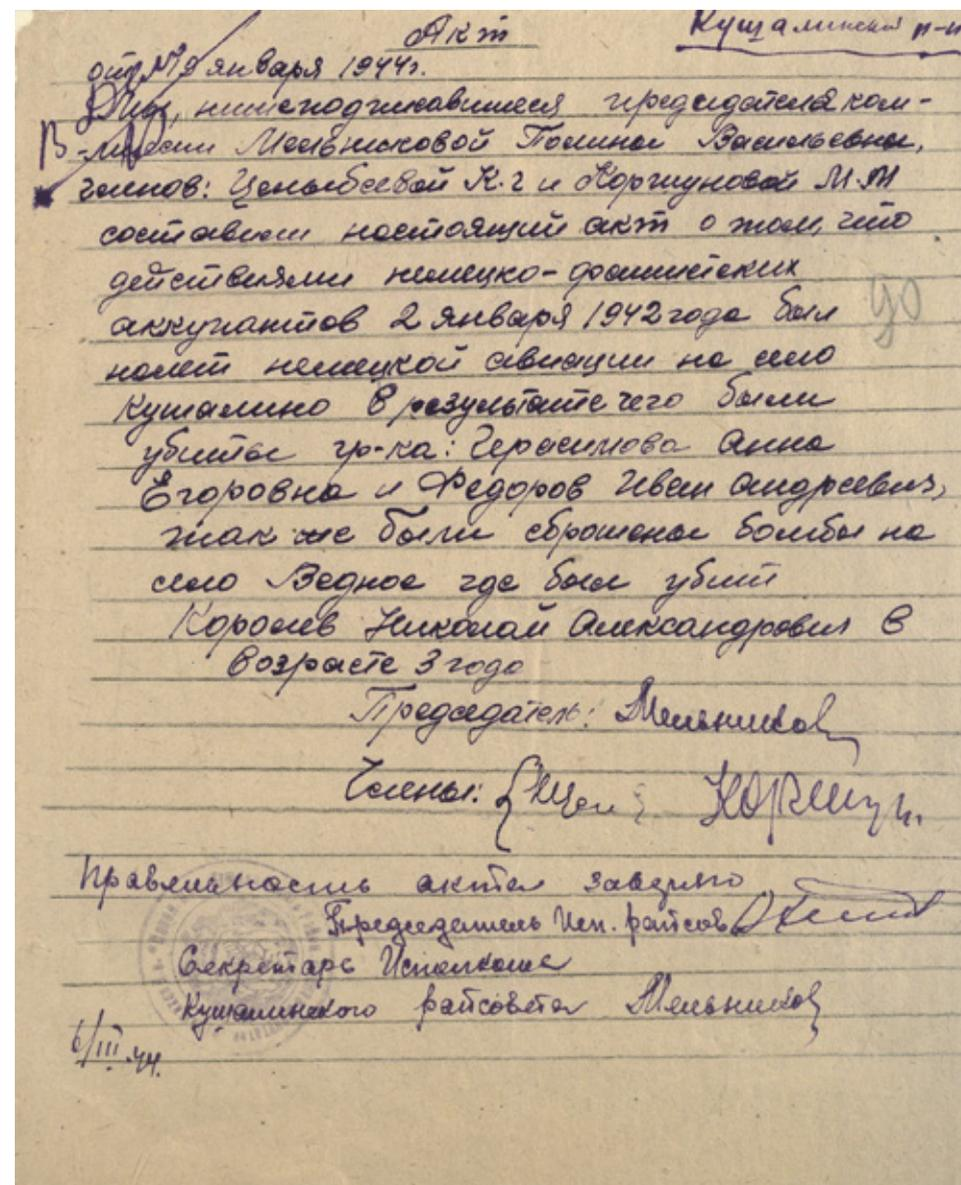 Акт
Кушалинский р-н
от 19 января 1944г.
Мы, нижеподписавшиеся председателя ком-
-миссии Мельниковой Полины Васильевны,
членов: Ценыбеевой К. г и Коршуновой М. М
составили настоящий акт о том, что
действиями немецко-фашистских
аккупантов 2 января 1942 года был
налет немецкой авиации на село
Кушалино в результате чего были
убиты гр-ка: Герасимова Анна
Егоровна и Федоров Иван Андреевич,
так же были сброшены бомбы на
село Ведное где был убит
Королев Николай Александрович в
возрасте 3 года
Председатель: Мельникова
Члены: Коршун
90
Правильность акта заверяю
Председатель Исп. райсов
Секретарь Исполкома
Кушалинского райсовета Мельникова
6/III.44.